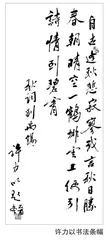 自古逢秋悲寂寥我言秋日勝
春朝晴空一鹤排雲上便引
詩情到碧霄
秋词刘禹锡
许力以
许力以书法条幅